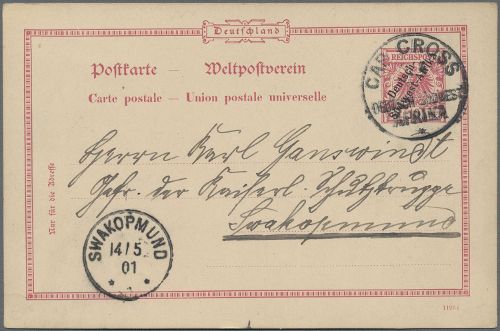 Deutschland
Postkarte — Weltpostverein
Carte postale — Union postale universelle
REICHSPOST
Deutsch-
Südwest-Afrika
CAP CROSS
AFRIKA
Herrn Karl Ganswindt
Gefr. der Kaiserl. Schutztruppe
Swakopmund
Nur für die Adresse
SWAKOPMUND
14/5
01